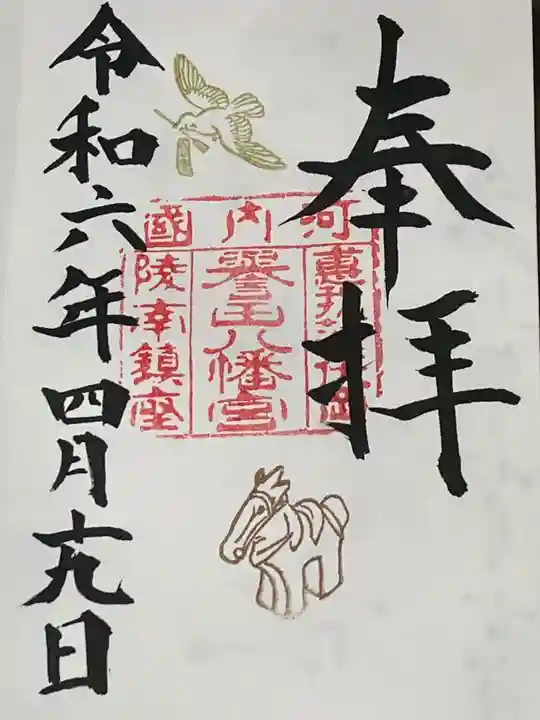 奉拝
河内國
惠我
譽田八幡宮
陵南鎮座
令和六年四月十九日